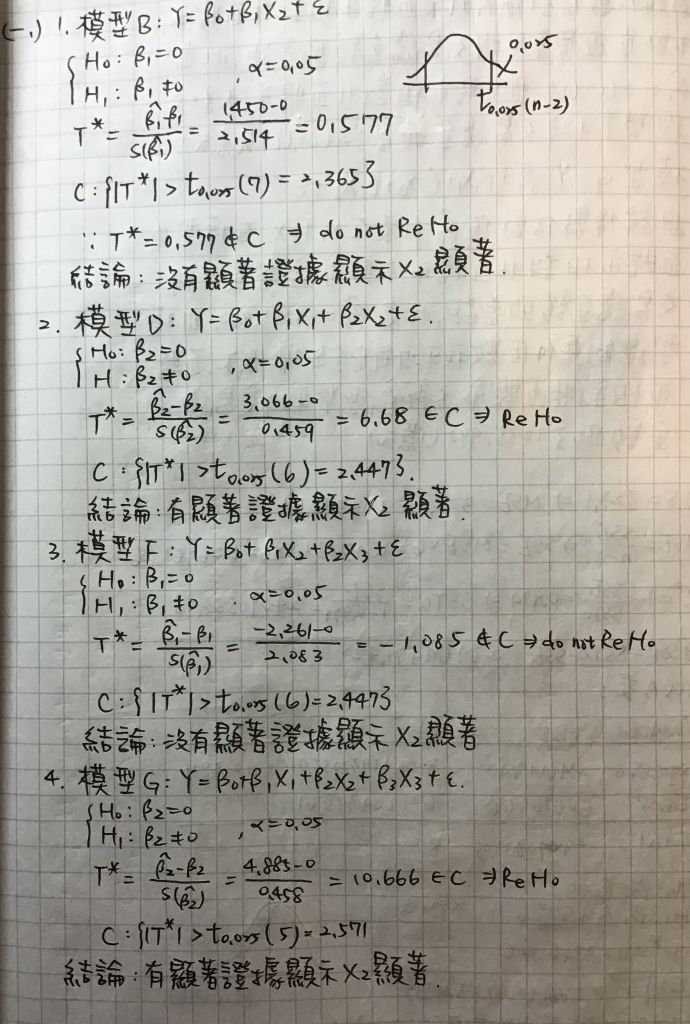 (一) 1. 模型B: Y=β₀+β₁X₂+ε
{ H₀: β₁=0
H₁: β₁≠0 , α=0.05
0.025
t₀.₀₂₅(n-2)
T* = (β̂₁-β₁)/S(β̂₁) = (1.450-0)/2.514 = 0.577
C: {|T*| > t₀.₀₂₅(7) = 2.365}
∵ T* = 0.577 ∉ C ⇒ do not Re H₀
結論: 沒有顯著證據顯示 X₂ 顯著.
2. 模型D: Y=β₀+β₁X₁+β₂X₂+ε.
{ H₀: β₂=0
H: β₂≠0 , α=0.05
T* = (β̂₂-β₂)/S(β̂₂) = (3.066-0)/0.459 = 6.68 ∈ C ⇒ Re H₀
C: {|T*| > t₀.₀₂₅(6) = 2.447}.
結論: 有顯著證據顯示 X₂ 顯著.
3. 模型F: Y=β₀+β₁X₂+β₂X₃+ε
{ H₀: β₁=0
H₁: β₁≠0 . α=0.05
T* = (β̂₁-β₁)/S(β̂₁) = (-2.261-0)/2.083 = -1.085 ∉ C ⇒ do not Re H₀
C: {|T*| > t₀.₀₂₅(6) = 2.447}
結論: 沒有顯著證據顯示 X₂ 顯著
4. 模型G: Y=β₀+β₁X₁+β₂X₂+β₃X₃+ε.
{ H₀: β₂=0
H₁: β₂≠0 , α=0.05
T* = (β̂₂-β₂)/S(β̂₂) = (4.885-0)/0.458 = 10.666 ∈ C ⇒ Re H₀
C: {|T*| > t₀.₀₂₅(5) = 2.571
結論: 有顯著證據顯示 X₂ 顯著.